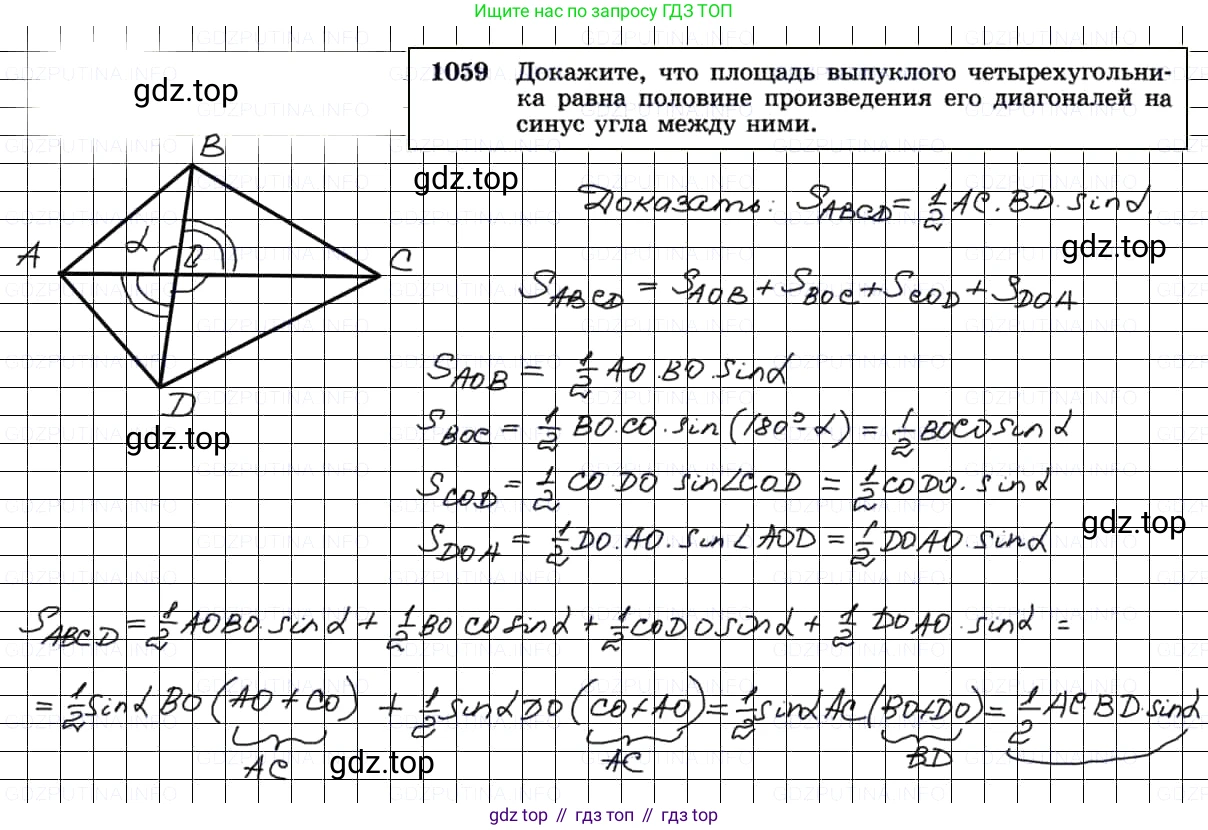 Ищите нас по запросу ГДЗ ТОП
1059 Докажите, что площадь выпуклого четырехугольни-
ка равна половине произведения его диагоналей на
синус угла между ними.
gdz.top
B
gdz.top
Доказать: S_ABCD = 1/2 AC · BD · sin α.
gdz.top
A
α
C
S_ABCD = S_AOB + S_BOC + S_COD + S_DOA
S_AOB = 1/2 AO · BO · sin α
D
gdz.top
S_BOC = 1/2 BO · CO · sin (180° - α) = 1/2 BO CO sin α
S_COD = 1/2 CO · DO sin∠COD = 1/2 CO DO · sin α
gdz.top
S_DOA = 1/2 DO · AO · sin∠AOD = 1/2 DO AO · sin α
S_ABCD = 1/2 AO BO · sin α + 1/2 BO CO sin α + 1/2 CO DO sin α + 1/2 DO AO · sin α =
= 1/2 sin α BO (AO + CO) + 1/2 sin α DO (CO + AO) = 1/2 sin α AC (BO + DO) = 1/2 AC BD · sin α
AC AC BD
gdz.top
gdz top // гдз топ // gdz top